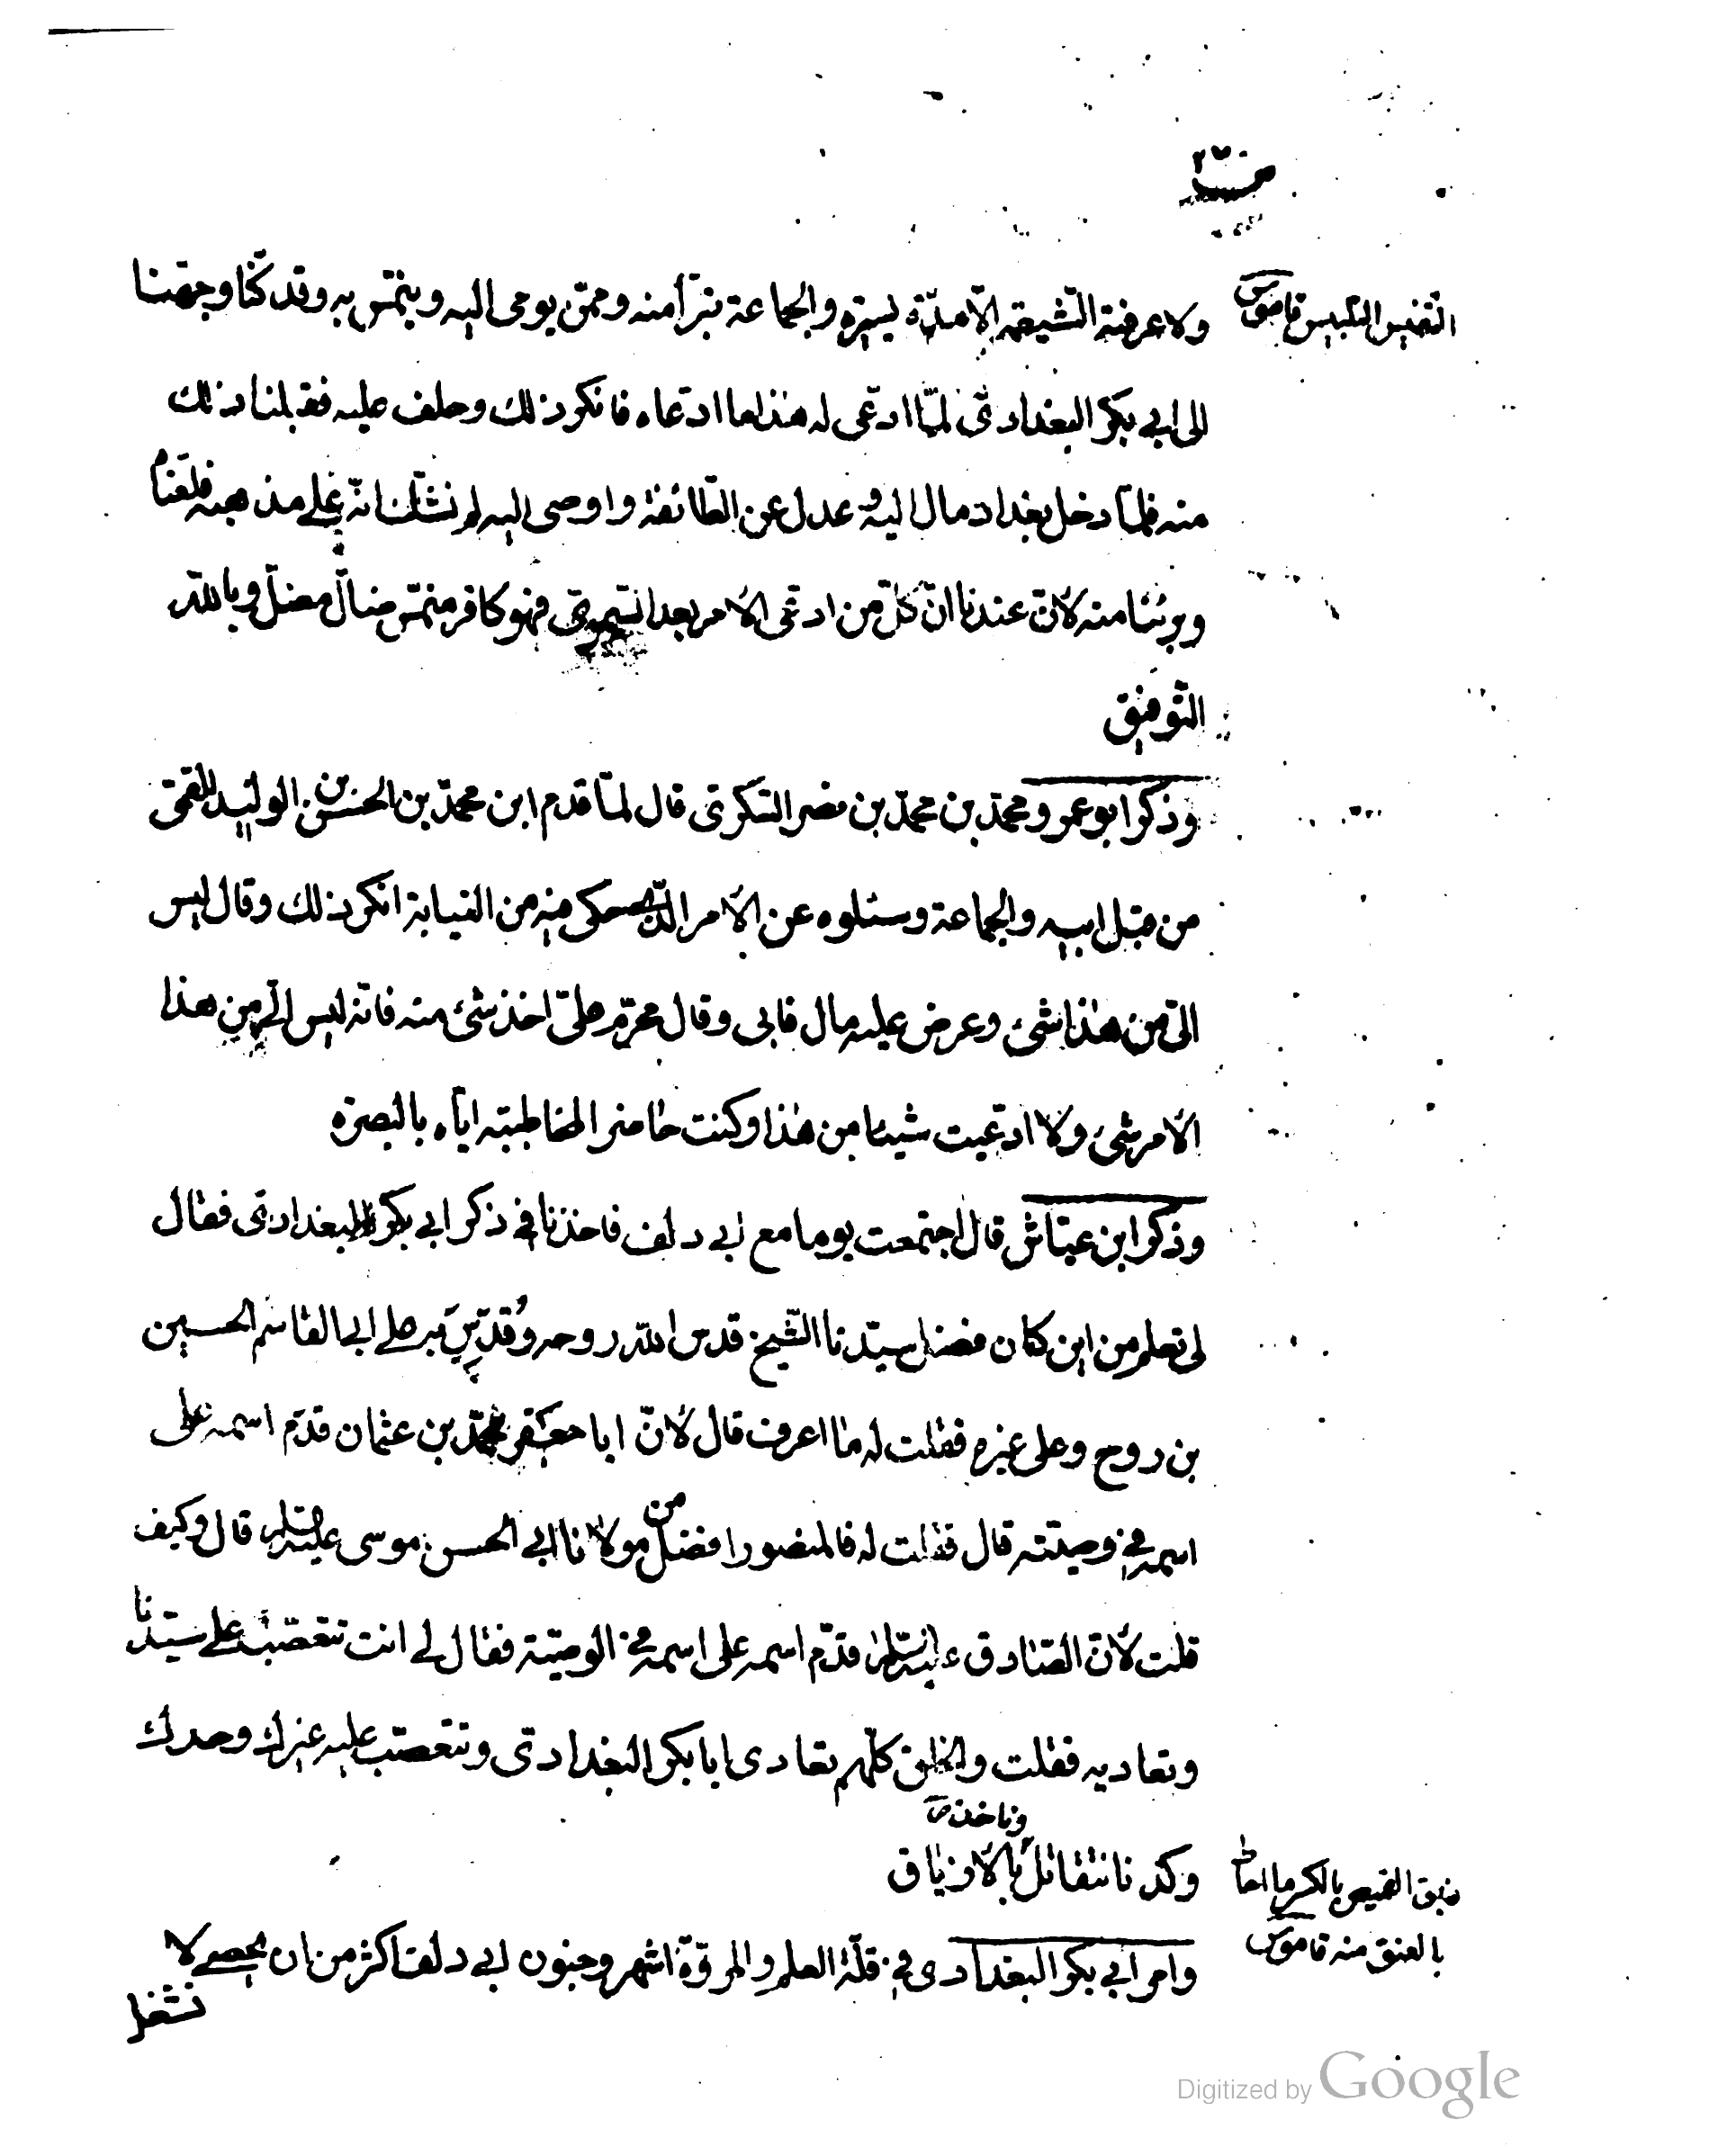 ولا عرفته الشيعة الا مدّة يسيرة والجماعة تتبرأ منه وممّن يومى اليه وينمّس به وقد كنّا وجهنا
التنميس التلبيس قاموس
الى ابي بكر البغدادىّ لمّا ادّعى له هذا ما ادّعاه فانكر ذلك وحلف عليه فقبلنا ذلك
منه فلمّا دخل بغداد مال اليه وعدل عن الطّائفة واوصى اليه لم نشكّ انّه على مذهبه فلعنّاه
وبرئنا منه لانّ عندنا انّ كلّ من ادّعى الامر بعد السّمرىّ فهو كافر منمّس ضالّ مضلّ وبالله
التّوفيق
وذكر ابو عمرو محمّد بن محمّد بن نصر السّكرىّ قال لمّا قدم ابن محمّد بن الحسن بن الوليد القمّىّ
من قبل ابيه والجماعة وسئلوه عن الامر الّذى حكى فيه من النّيابة انكر ذلك وقال ليس
الىّ من هذا شئ وعرض عليه مال فابى وقال محرّم علىّ اخذ شئ منه فانّه ليس الىّ من هذا
الامر شئ ولا ادّعيت شيئا من هذا وكنت حاضرا لمخاطبته ايّاه بالبصرة
وذكر ابن عيّاش قال اجتمعت يوما مع ابي دلف فاخذنا في ذكر ابي بكر البغدادىّ فقال
لى تعلم من اين كان فضل سيّدنا الشّيخ قدس الله روحه وقدّس به على ابي القاسم الحسين
بن روح وعلى غيره فقلت له ما اعرف قال لانّ ابا جعفر محمّد بن عثمان قدّم اسمه على
اسمه في وصيّته قال فقلت له فالمنصور افضل من مولانا ابي الحسن موسى عليه السّلم قال وكيف
قلت لانّ الصّادق عليه السّلم قدّم اسمه على اسمه في الوصيّة فقال لي انت تتعصّب على سيّدنا
وتعاديه فقلت والخلق كلّهم تعادى ابا بكر البغدادىّ وتتعصّب عليه غيرك وحدك
وكدنا نتقاتل وناخذ بالازياق
زيق القميص بالكسر ما احاط
بالعنق منه قاموس
وامر ابي بكر البغدادى في قلّة العلم والمروّة اشهر وجنون ابي دلف اكثر من ان يحصى لا
نشغل